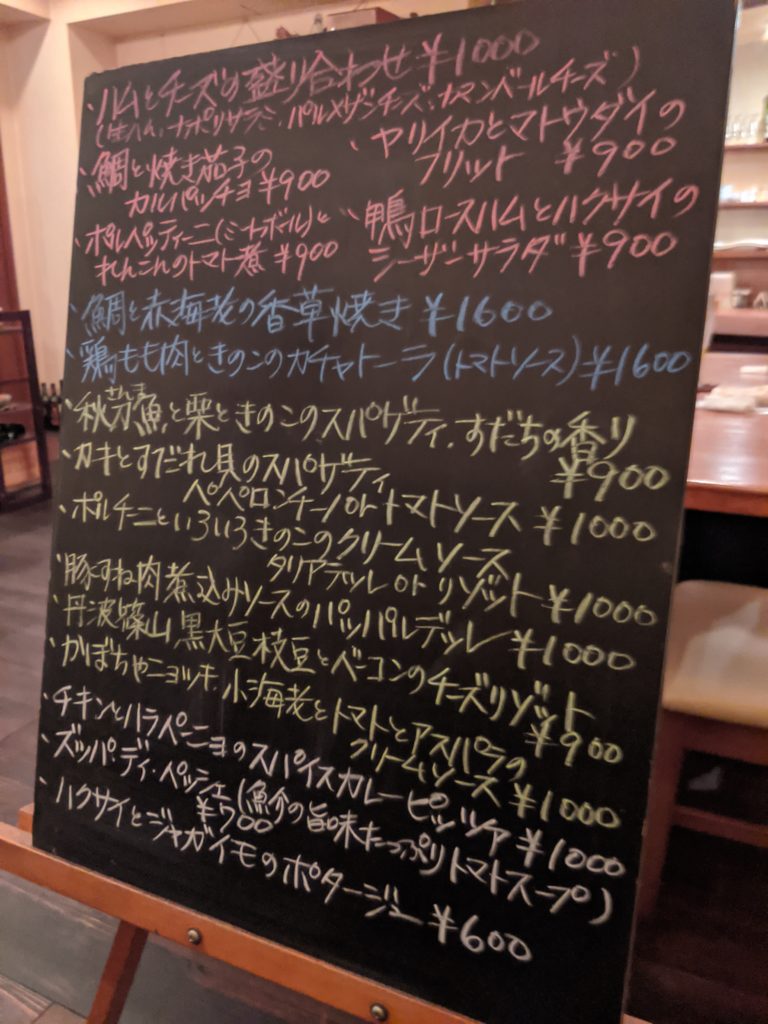 ・ハムとチーズの盛り合わせ ¥1000
(生ハム、ナポリサラミ、パルメザンチーズ、カマンベールチーズ)
・鯛と焼き茄子の
カルパッチョ ¥900
・ポルペッティーニ(ミートボール)と
れんこんのトマト煮 ¥900
・ヤリイカとマトウダイの
フリット ¥900
・鴨ロースハムとハクサイの
シーザーサラダ ¥900
・鯛と赤海老の香草焼き ¥1600
・鶏もも肉ときのこのカチャトーラ(トマトソース) ¥1600
さんま
・秋刀魚と栗ときのこのスパゲティ、すだちの香り
¥900
・カキとすだれ貝のスパゲティ
ペペロンチーノorトマトソース ¥1000
・ポルチーニといろいろきのこのクリームソース
タリアテッレ or リゾット ¥1000
・豚すね肉煮込みソースのパッパルデッレ ¥1000
・丹波篠山黒大豆枝豆とベーコンのチーズリゾット
¥900
・かぼちゃニョッキ、小海老とトマトとアスパラの
クリームソース ¥1000
・チキンとハラペーニョのスパイスカレーピッツァ ¥1000
・ズッパ・ディ・ペッシェ(魚介の旨味たっぷりトマトスープ)
¥500
・ハクサイとジャガイモのポタージュ ¥600